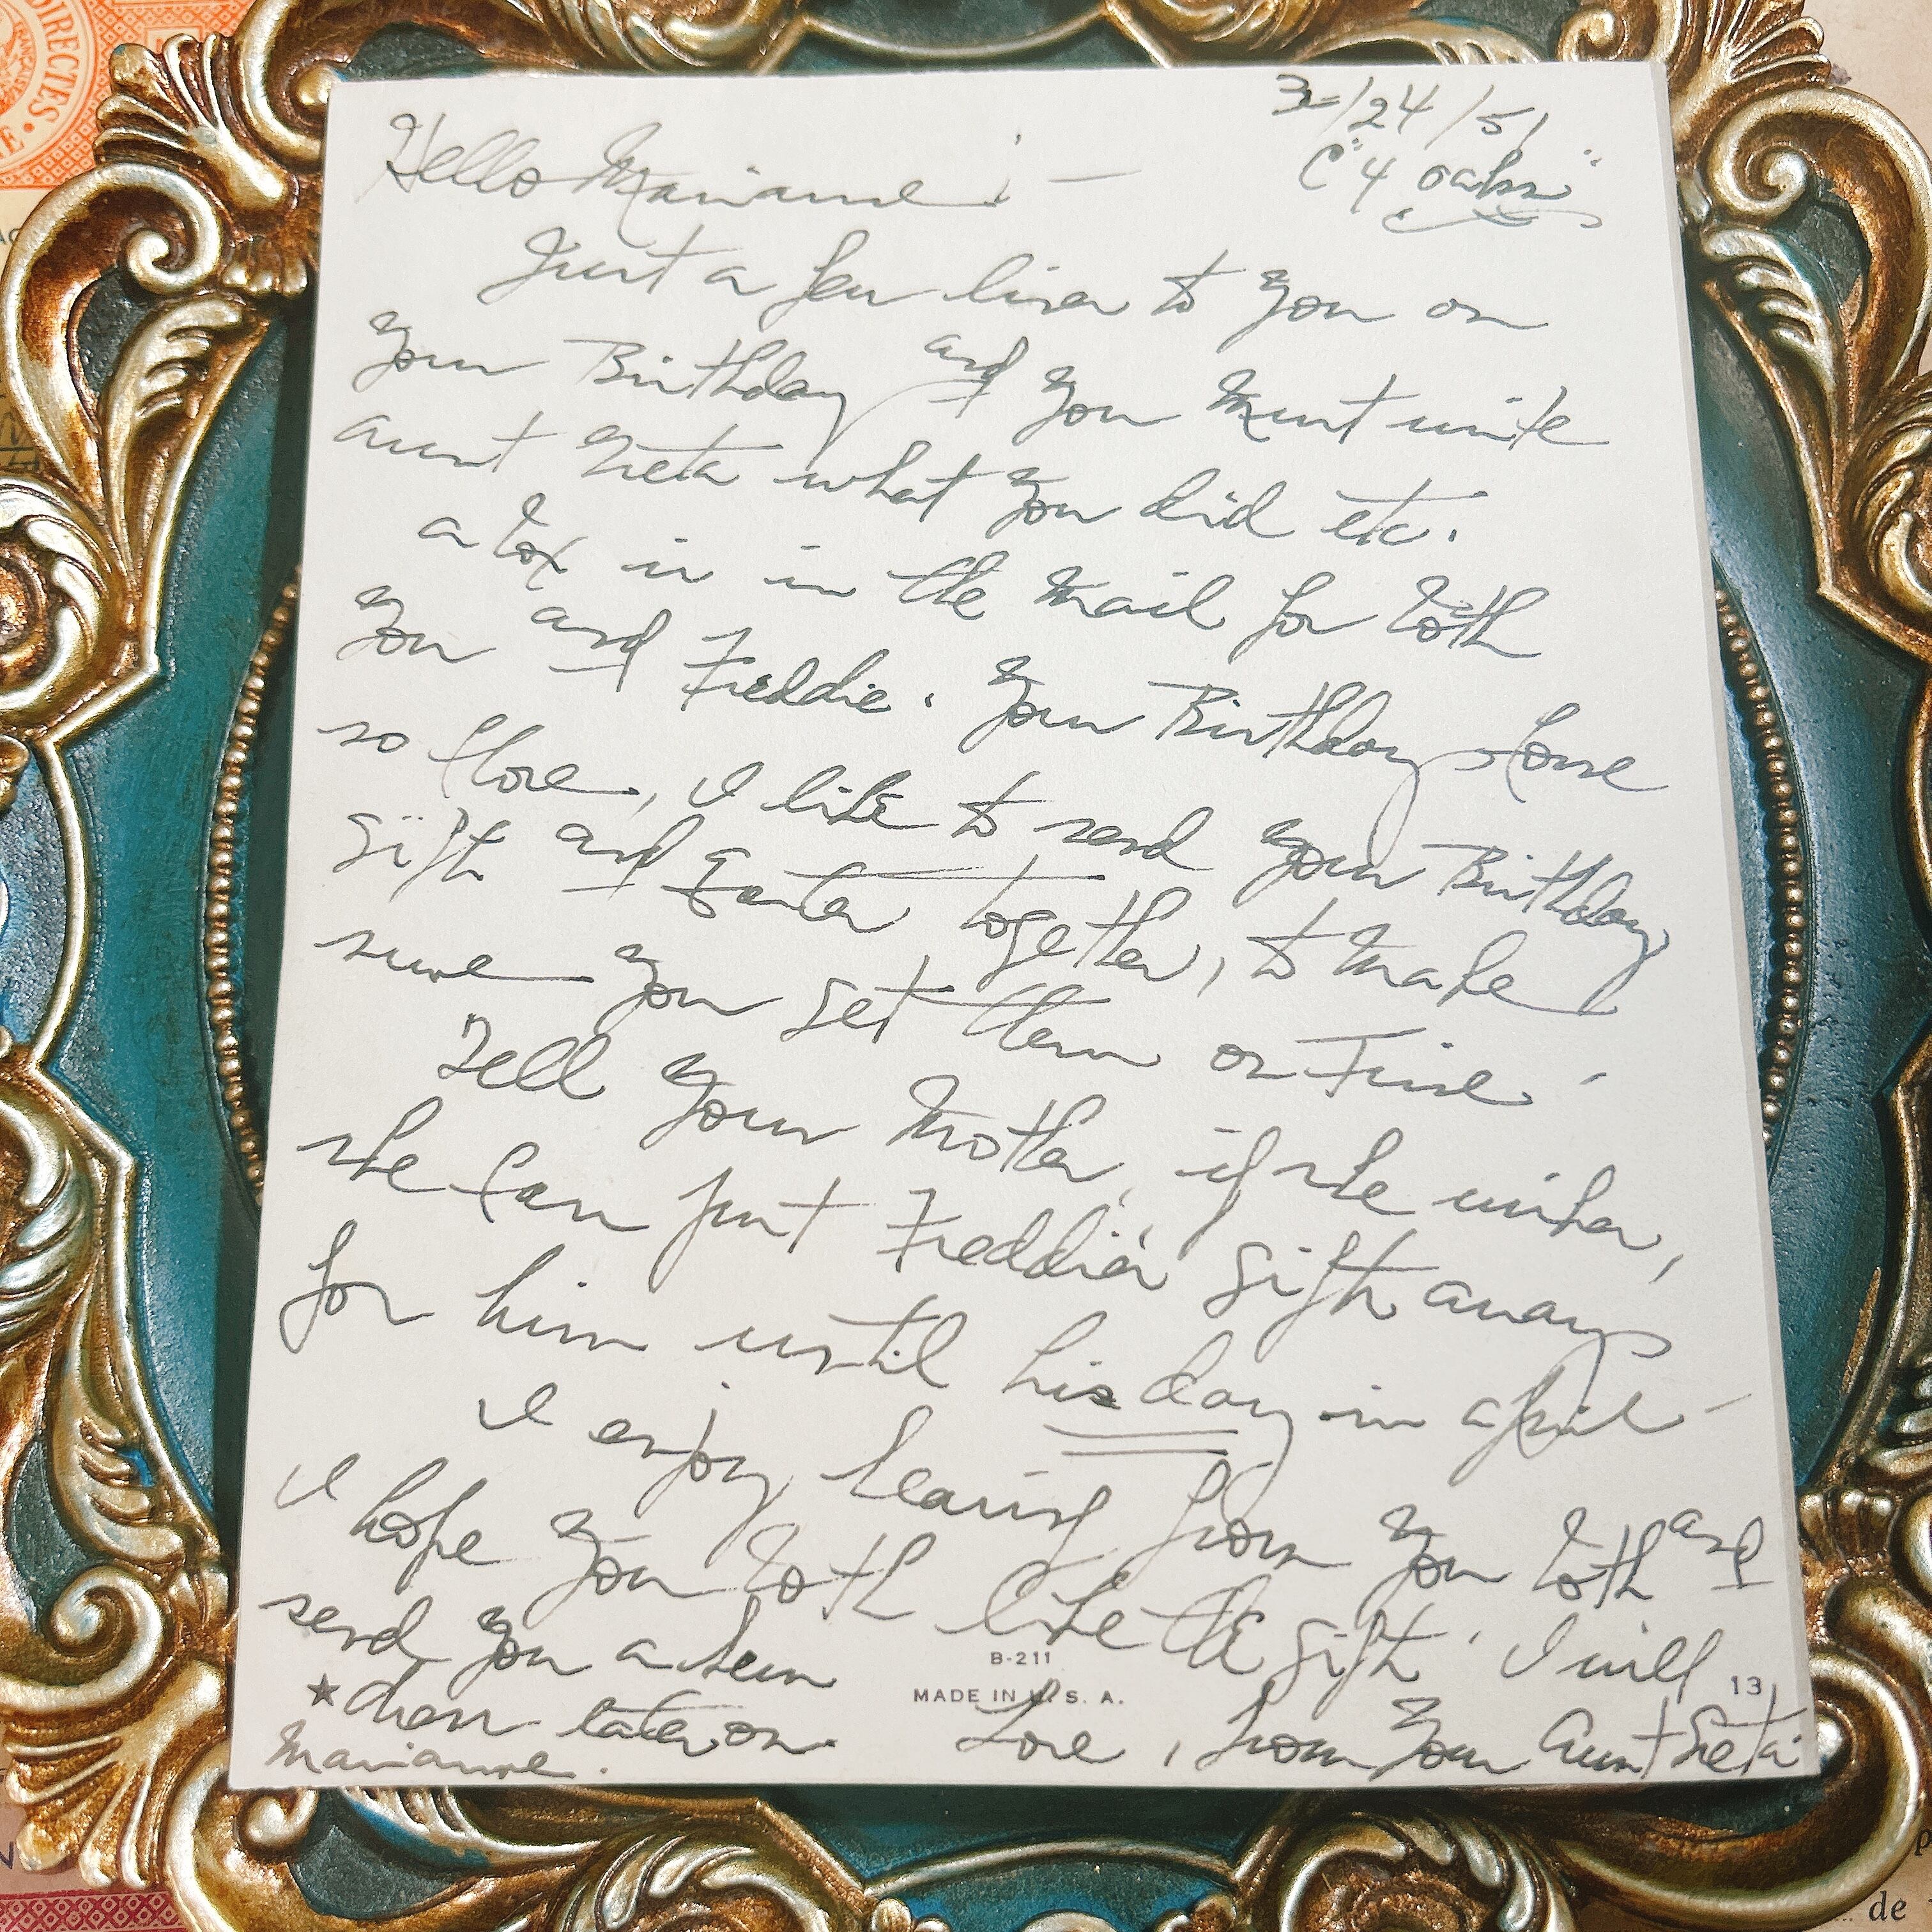 3/24/51
"4 Oaks"
Hello Marianne! —
Just a few lines to you on
your Birthday and you must write
Aunt Neta what you did etc.
A box is in the mail for both
you and Freddie. Your Birthdays
so close, I like to send your Birthday
gifts and Easter together, to make
sure you get them on Time -
Tell your Mother, if she wishes,
she can put Freddie's gifts away
for him until his day in April -
I enjoy hearing from you both and
I hope you both like the gifts. I will
send you a
dress later on.
★
Marianne.
Love, from Your Aunt Neta
B-211
MADE IN U. S. A.
13
DIRECTES
de